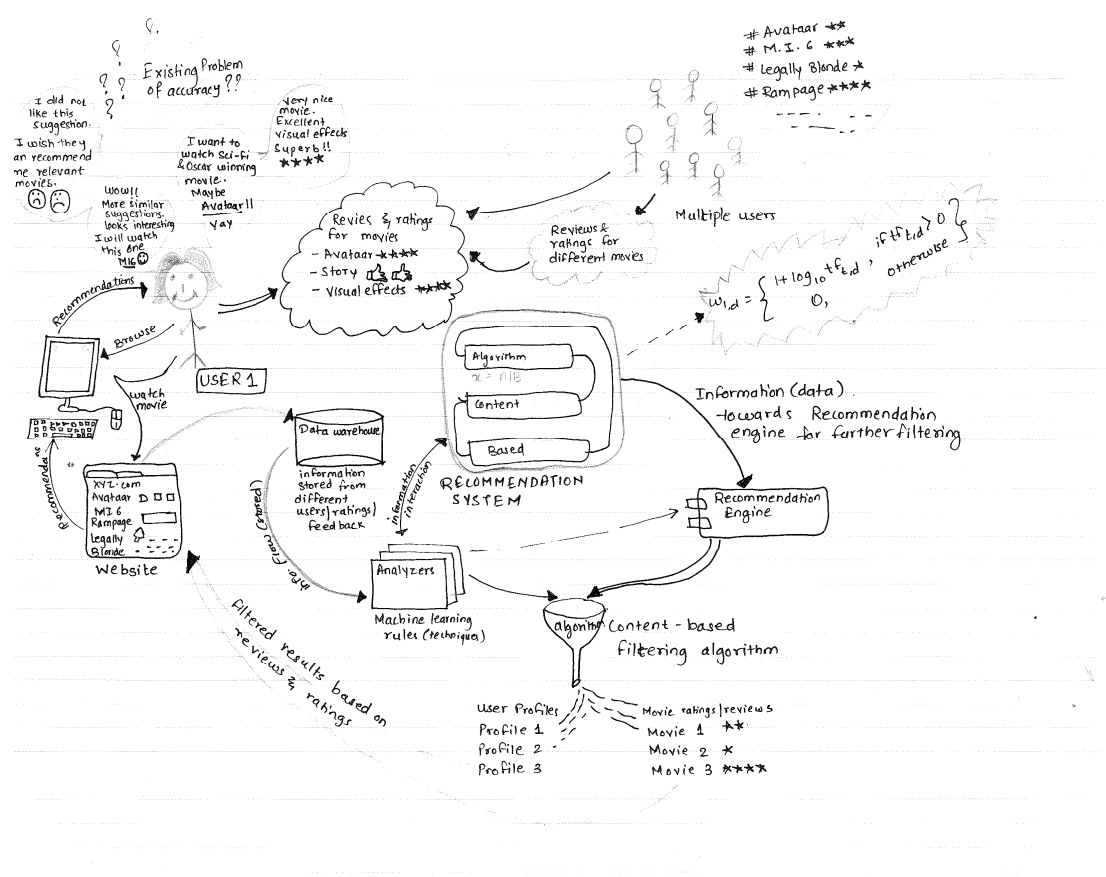 Existing Problem
of accuracy ??
I did not
like this
suggestion.
I wish they
an recommend
me relevant
movies.
I want to
watch Sci-fi
& Oscar winning
movie.
Maybe
Avataar!!
Yay
Very nice
movie.
Excellent
visual effects
Superb!!
WOW!!
More similar
suggestions.
looks interesting
I will watch
this one
MI6
# Avataar **
# M.I.6 ***
# Legally Blonde *
# Rampage ****
Multiple users
Revies & ratings
for movies
- Avataar ****
- Story
- Visual effects ****
Reviews &
ratings for
different movies
w1,d = { 1+log10 tft,d, if tft,d > 0
0, otherwise }
Recommendations
Browse
USER 1
watch
movie
Recommendations
XYZ.com
Avataar
MI 6
Rampage
Legally
Blonde
Website
Data warehouse
information
stored from
different
users/ratings/
feedback
Info. Flow (stored)
information
interaction
Algorithm
Content
Based
RECOMMENDATION
SYSTEM
Information (data)
towards Recommendation
engine for further filtering
Recommendation
Engine
Analyzers
Machine learning
rules (techniques)
algorithm
Content-based
filtering algorithm
Filtered results based on
reviews & ratings
User Profiles
Profile 1
Profile 2
Profile 3
Movie ratings/reviews
Movie 1 **
Movie 2 *
Movie 3 ****